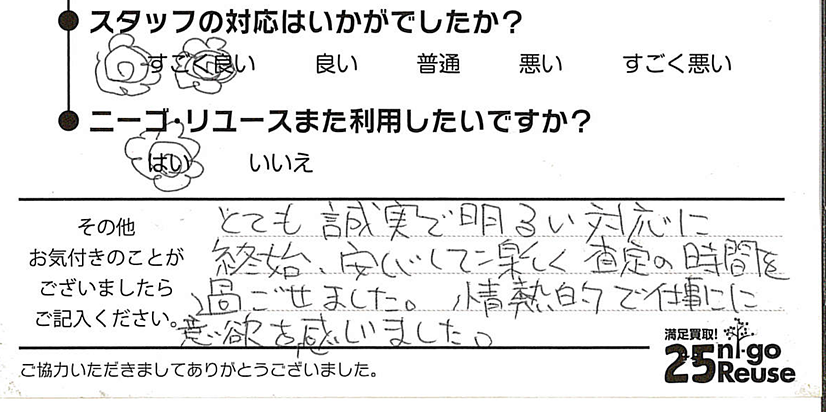 スタッフの対応はいかがでしたか？
すごく良い 良い 普通 悪い すごく悪い
ニーゴ・リユースまた利用したいですか？
はい いいえ
その他
お気付きのことが
ございましたら
ご記入ください。
とても誠実で明るい対応に
終始、安心して楽しく査定の時間を
過ごせました。情熱的で仕事にに
意欲を感じました。
ご協力いただきましてありがとうございました。
満足買取!
25 ni-go
Reuse